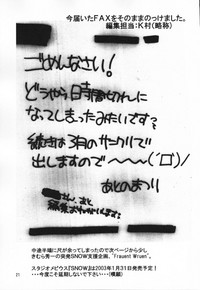 今届いたFAXをそのままのっけました。
編集担当：K村(略称)
ごめんなさい！
どうやら時間切れに
なってしまったみたいです？
続きは3月のサンクリで
出しますので〜〜〜(´Д`)/
あとのまつり
中途半端に尺が余ってしまったので次ページから少し
きむら秀一の突発SNOW支援企画、"Frauent Wruen"。
スタジオメビウス『SNOW』は2003年1月31日発売予定！
…今度こそ延期しないで下さい…(懇願)
21